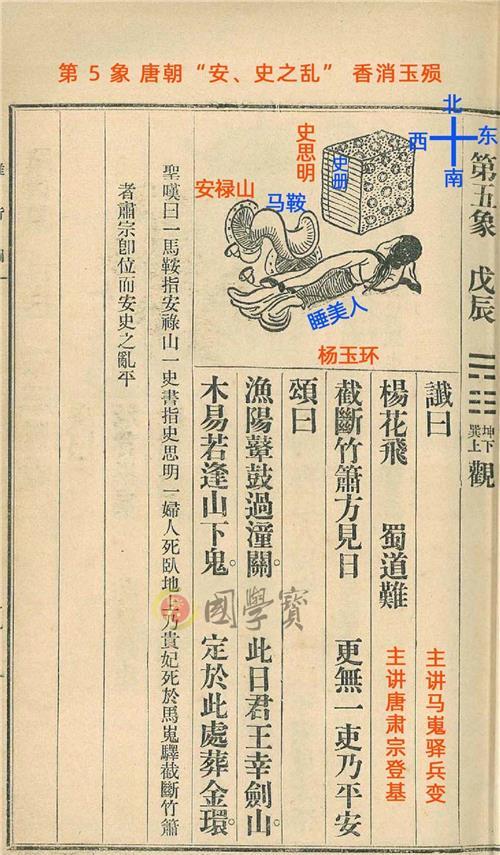 第 5 象 唐朝“安、史之乱” 香消玉殒
北
西 东
南
史思明
史册
安禄山
马鞍
睡美人
杨玉环
第五象 戊辰
坤下
巽上
觀
讖曰
楊花飛 蜀道難
截斷竹簫方見日 更無一吏乃平安
主讲马嵬驿兵变
主讲唐肃宗登基
頌曰
漁陽鼙鼓過潼關。 此日君王幸劍山。
木易若逢山下鬼。 定於此處葬金環。
聖嘆曰一馬鞍指安祿山一史書指史思明一婦人死臥地上乃貴妃死於馬嵬驛截斷竹簫
者肅宗卽位而安史之亂平
國學寶